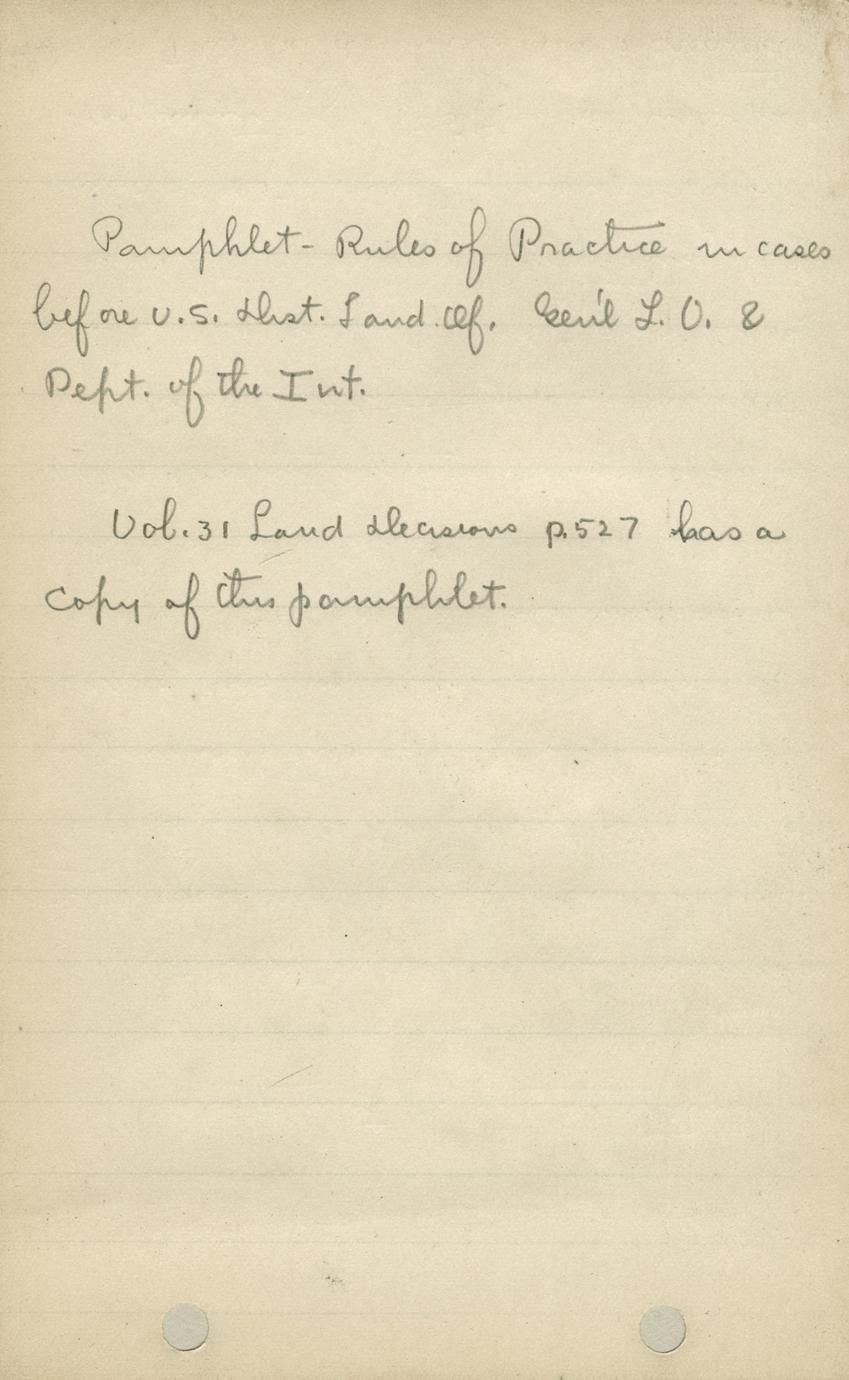 Pamphlet - Rules of Practice in cases
before U.S. Dist. Land Of. Gen'l L. O. &
Dept. of the Int.
Vol. 31 Land Decisions p. 527 has a
copy of this pamphlet.